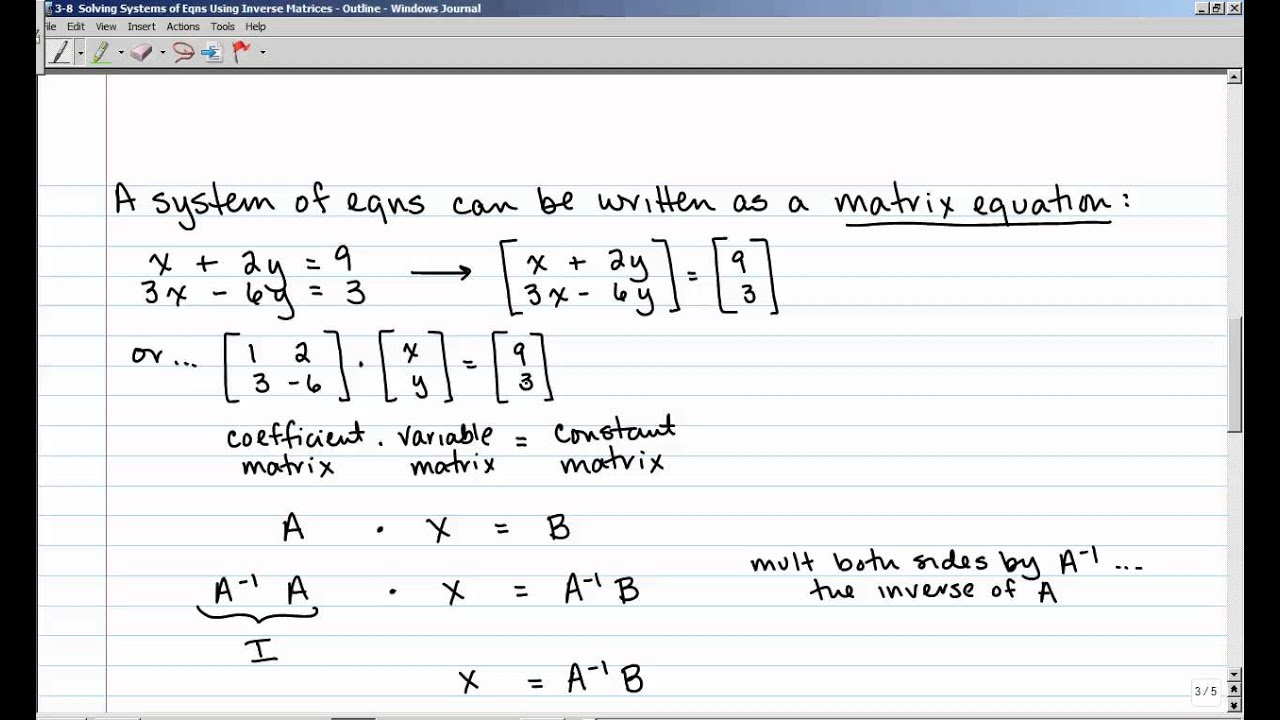 3-8 Solving Systems of Eqns Using Inverse Matrices - Outline - Windows Journal
File Edit View Insert Actions Tools Help
A system of eqns can be written as a matrix equation:
x + 2y = 9 → [ x + 2y ] = [ 9 ]
3x - 6y = 3 [ 3x - 6y ] [ 3 ]
or... [ 1 2 ] · [ x ] = [ 9 ]
[ 3 -6 ] [ y ] [ 3 ]
coefficient · variable = constant
matrix matrix matrix
A · X = B
mult both sides by A⁻¹ ...
the inverse of A
A⁻¹ A · X = A⁻¹ B
I
X = A⁻¹ B
3 / 5